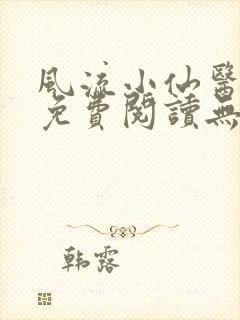 風流小仙醫
免費閱讀無
韩露